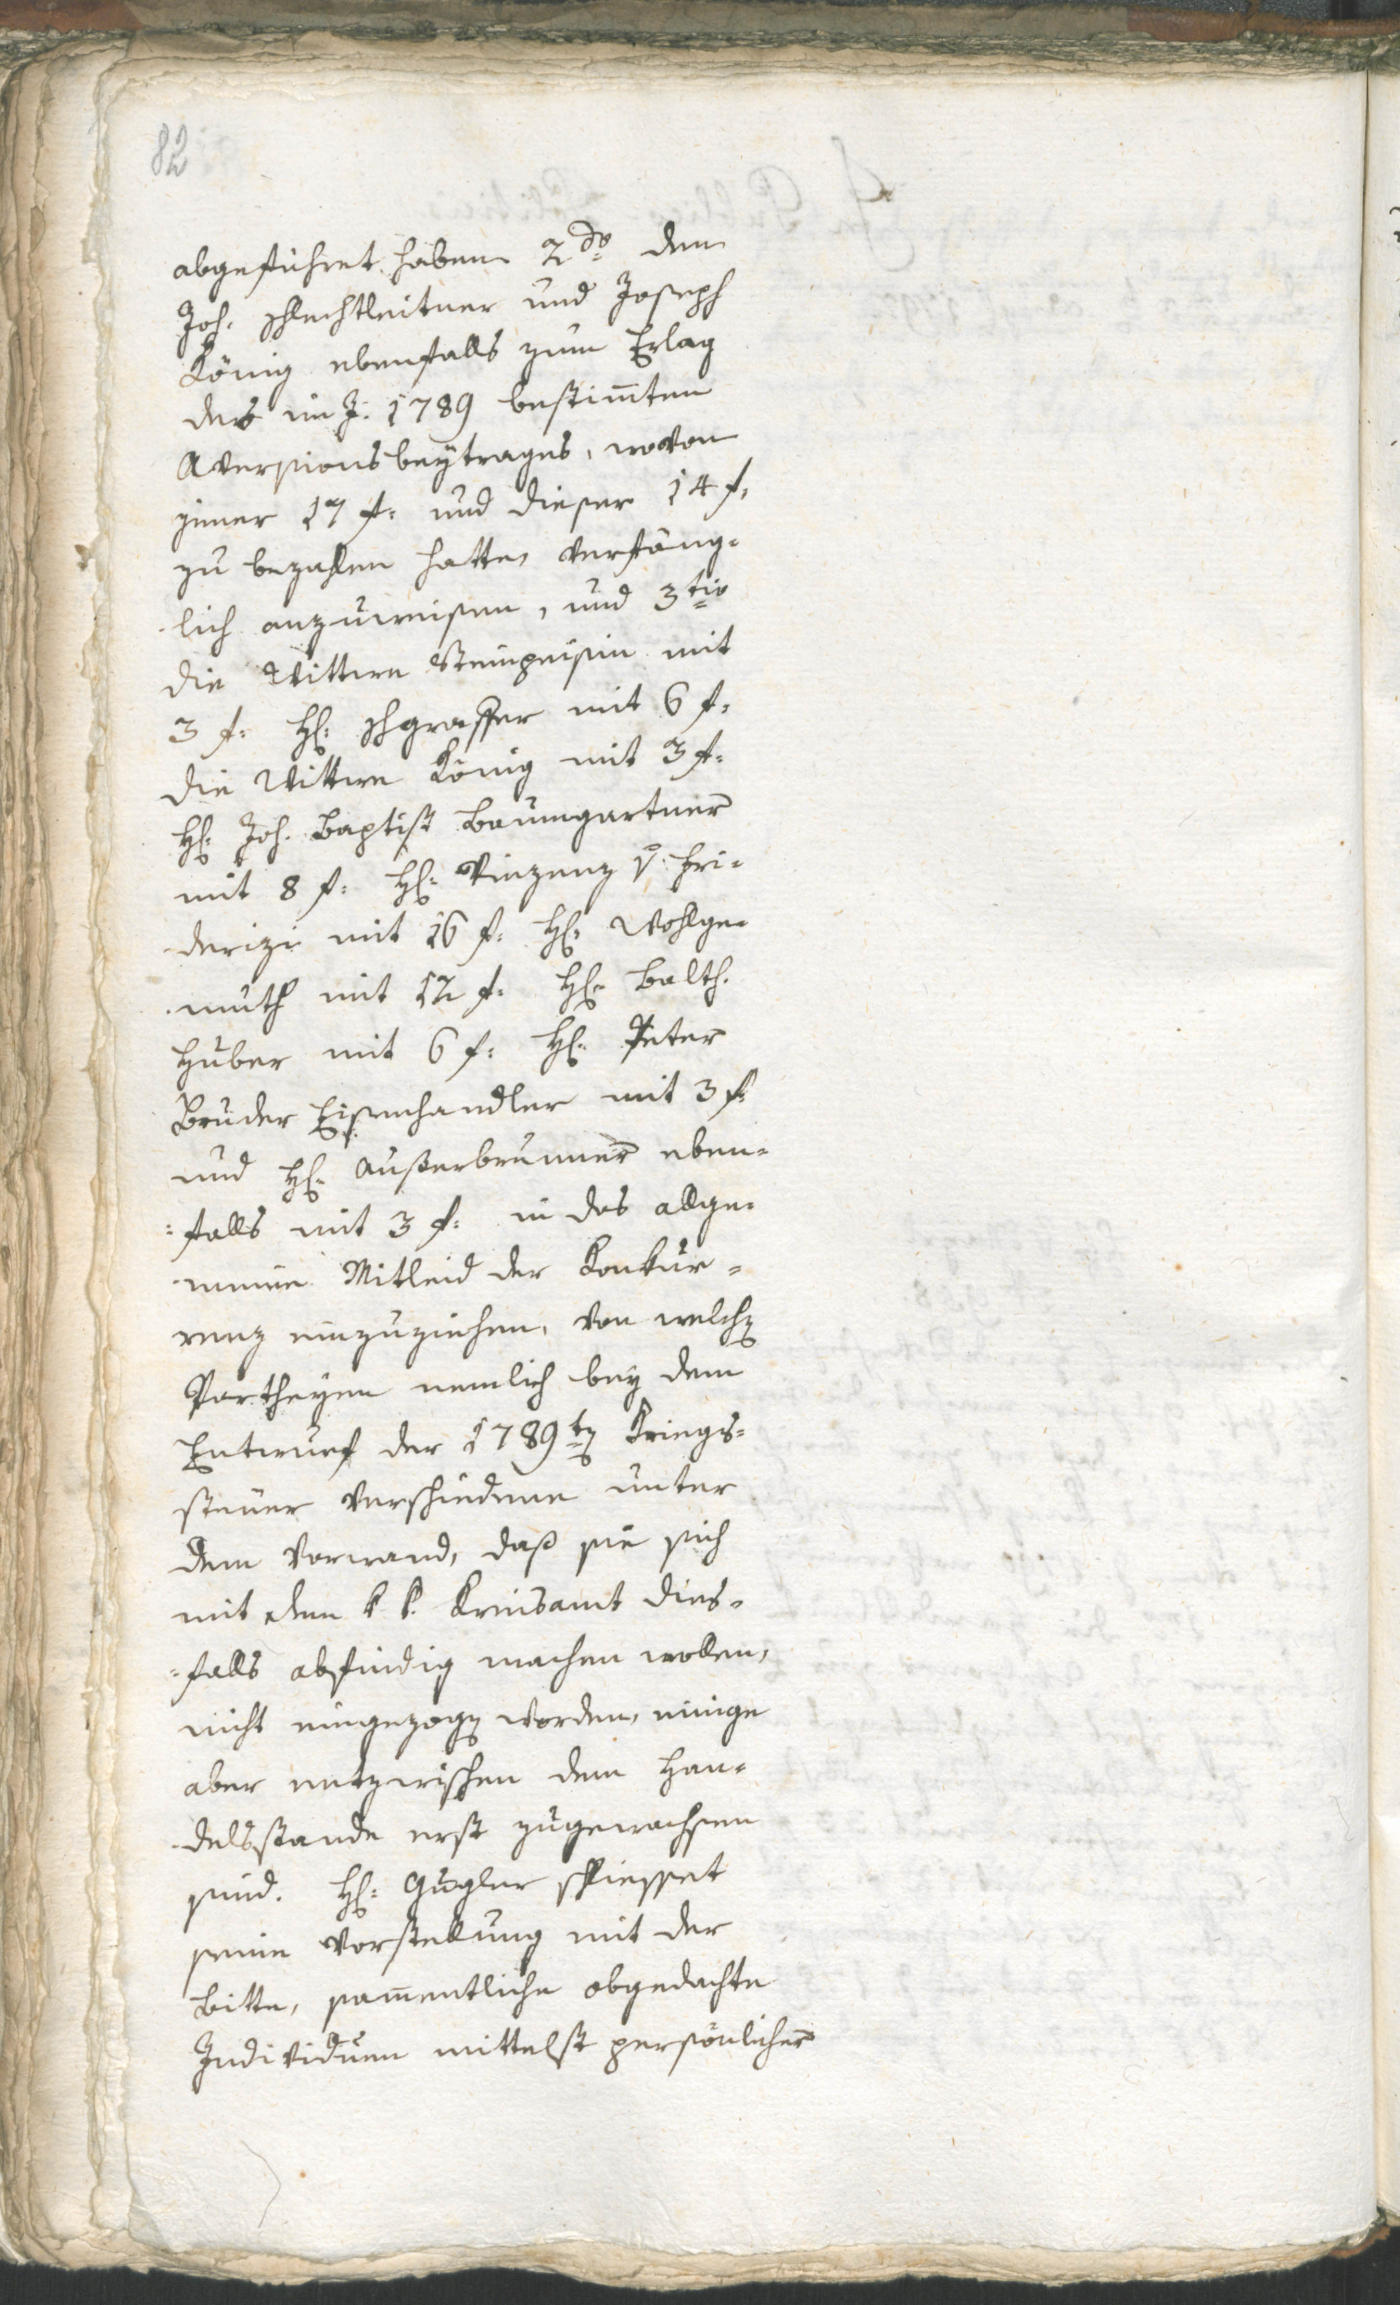 82
abgeführet haben 2do dem
Joh. Schlechtleitner und Joseph
König ebenfalls zum Erlag
des im J: 1789 bestim̅ten
Aversionsbeytrages, wovon
jener 17 f: und dieser 14 f,
zu bezahlen hatte, verfäng=
lich anzuweisen, und 3tio
die Wittwe mit
3 f: H: Schgraffer mit 6 f:
die Wittwe König mit 3 f:
H: Joh. Baptist Baumgartner
mit 8 f: H: Vinzenz v: Fri=
derizi mit 16 f: H: Wohlge=
muth mit 12 f: H: Balth.
Huber mit 6 f: H: Peter
Bruder Eisenhandler mit 3 f:
und H: Außerbrunner eben=
=falls mit 3 f: in das allge=
meine Mitleid der Konkur=
renz einzuziehen, von welchen
Partheyen nemlich bey dem
Entwurf der 1789ten Kriegs=
steuer verschiedene unter
dem Vorwand, daß sie sich
mit dem k k. Kreisamt dies=
=falls abfindig machen wollen,
nicht eingezogen worden, einige
aber entzwischen dem Han=
delsstande erst zugewachsen
sind. H: Gugler schliesset
seine Vorstellung mit der
Bitte, sam̅entliche obgedachte
Individuen mittelst persönlicher